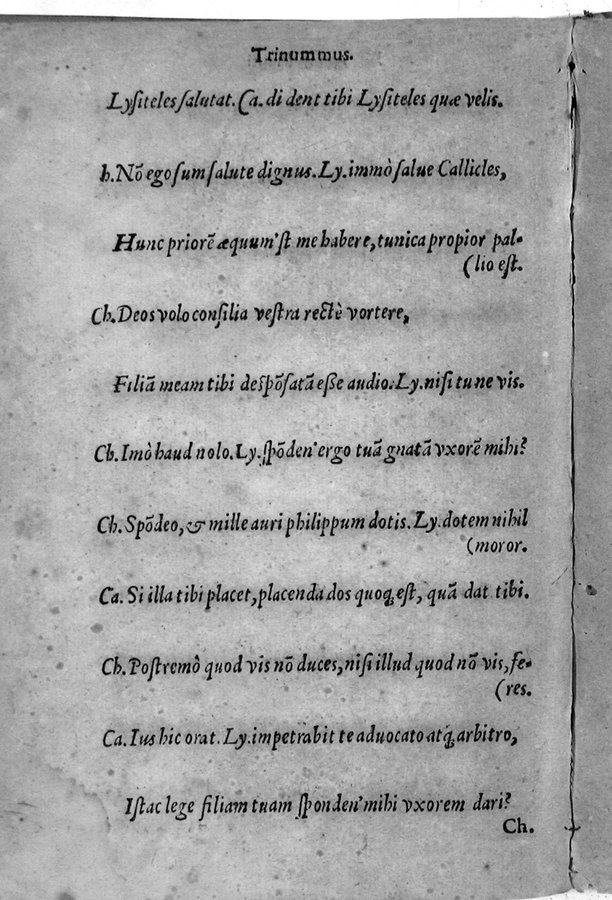 Trinummus.
Lyſiteles ſalutat. Ca. di dent tibi Lyſiteles quæ velis.
h. Nõ ego ſum ſalute dignus. Ly. immò ſalue Callicles,
Hunc priorẽ æquum'ſt me habere, tunica propior pal-
(lio eſt.
Ch. Deos volo conſilia veſtra rectè vortere,
Filiã meam tibi deſpõſatã eſſe audio. Ly. niſi tu ne vis.
Ch. Imò haud nolo. Ly. ſpõden' ergo tuã gnatã vxorẽ mihi?
Ch. Spõdeo, & mille auri philippum dotis. Ly. dotem nihil
(moror.
Ca. Si illa tibi placet, placenda dos quoq; eſt, quã dat tibi.
Ch. Poſtremò quod vis nõ duces, niſi illud quod nõ vis, fe-
(res.
Ca. Ius hic orat. Ly. impetrabit te aduocato atq; arbitro,
Iſtac lege filiam tuam ſponden' mihi vxorem dari?
Ch.